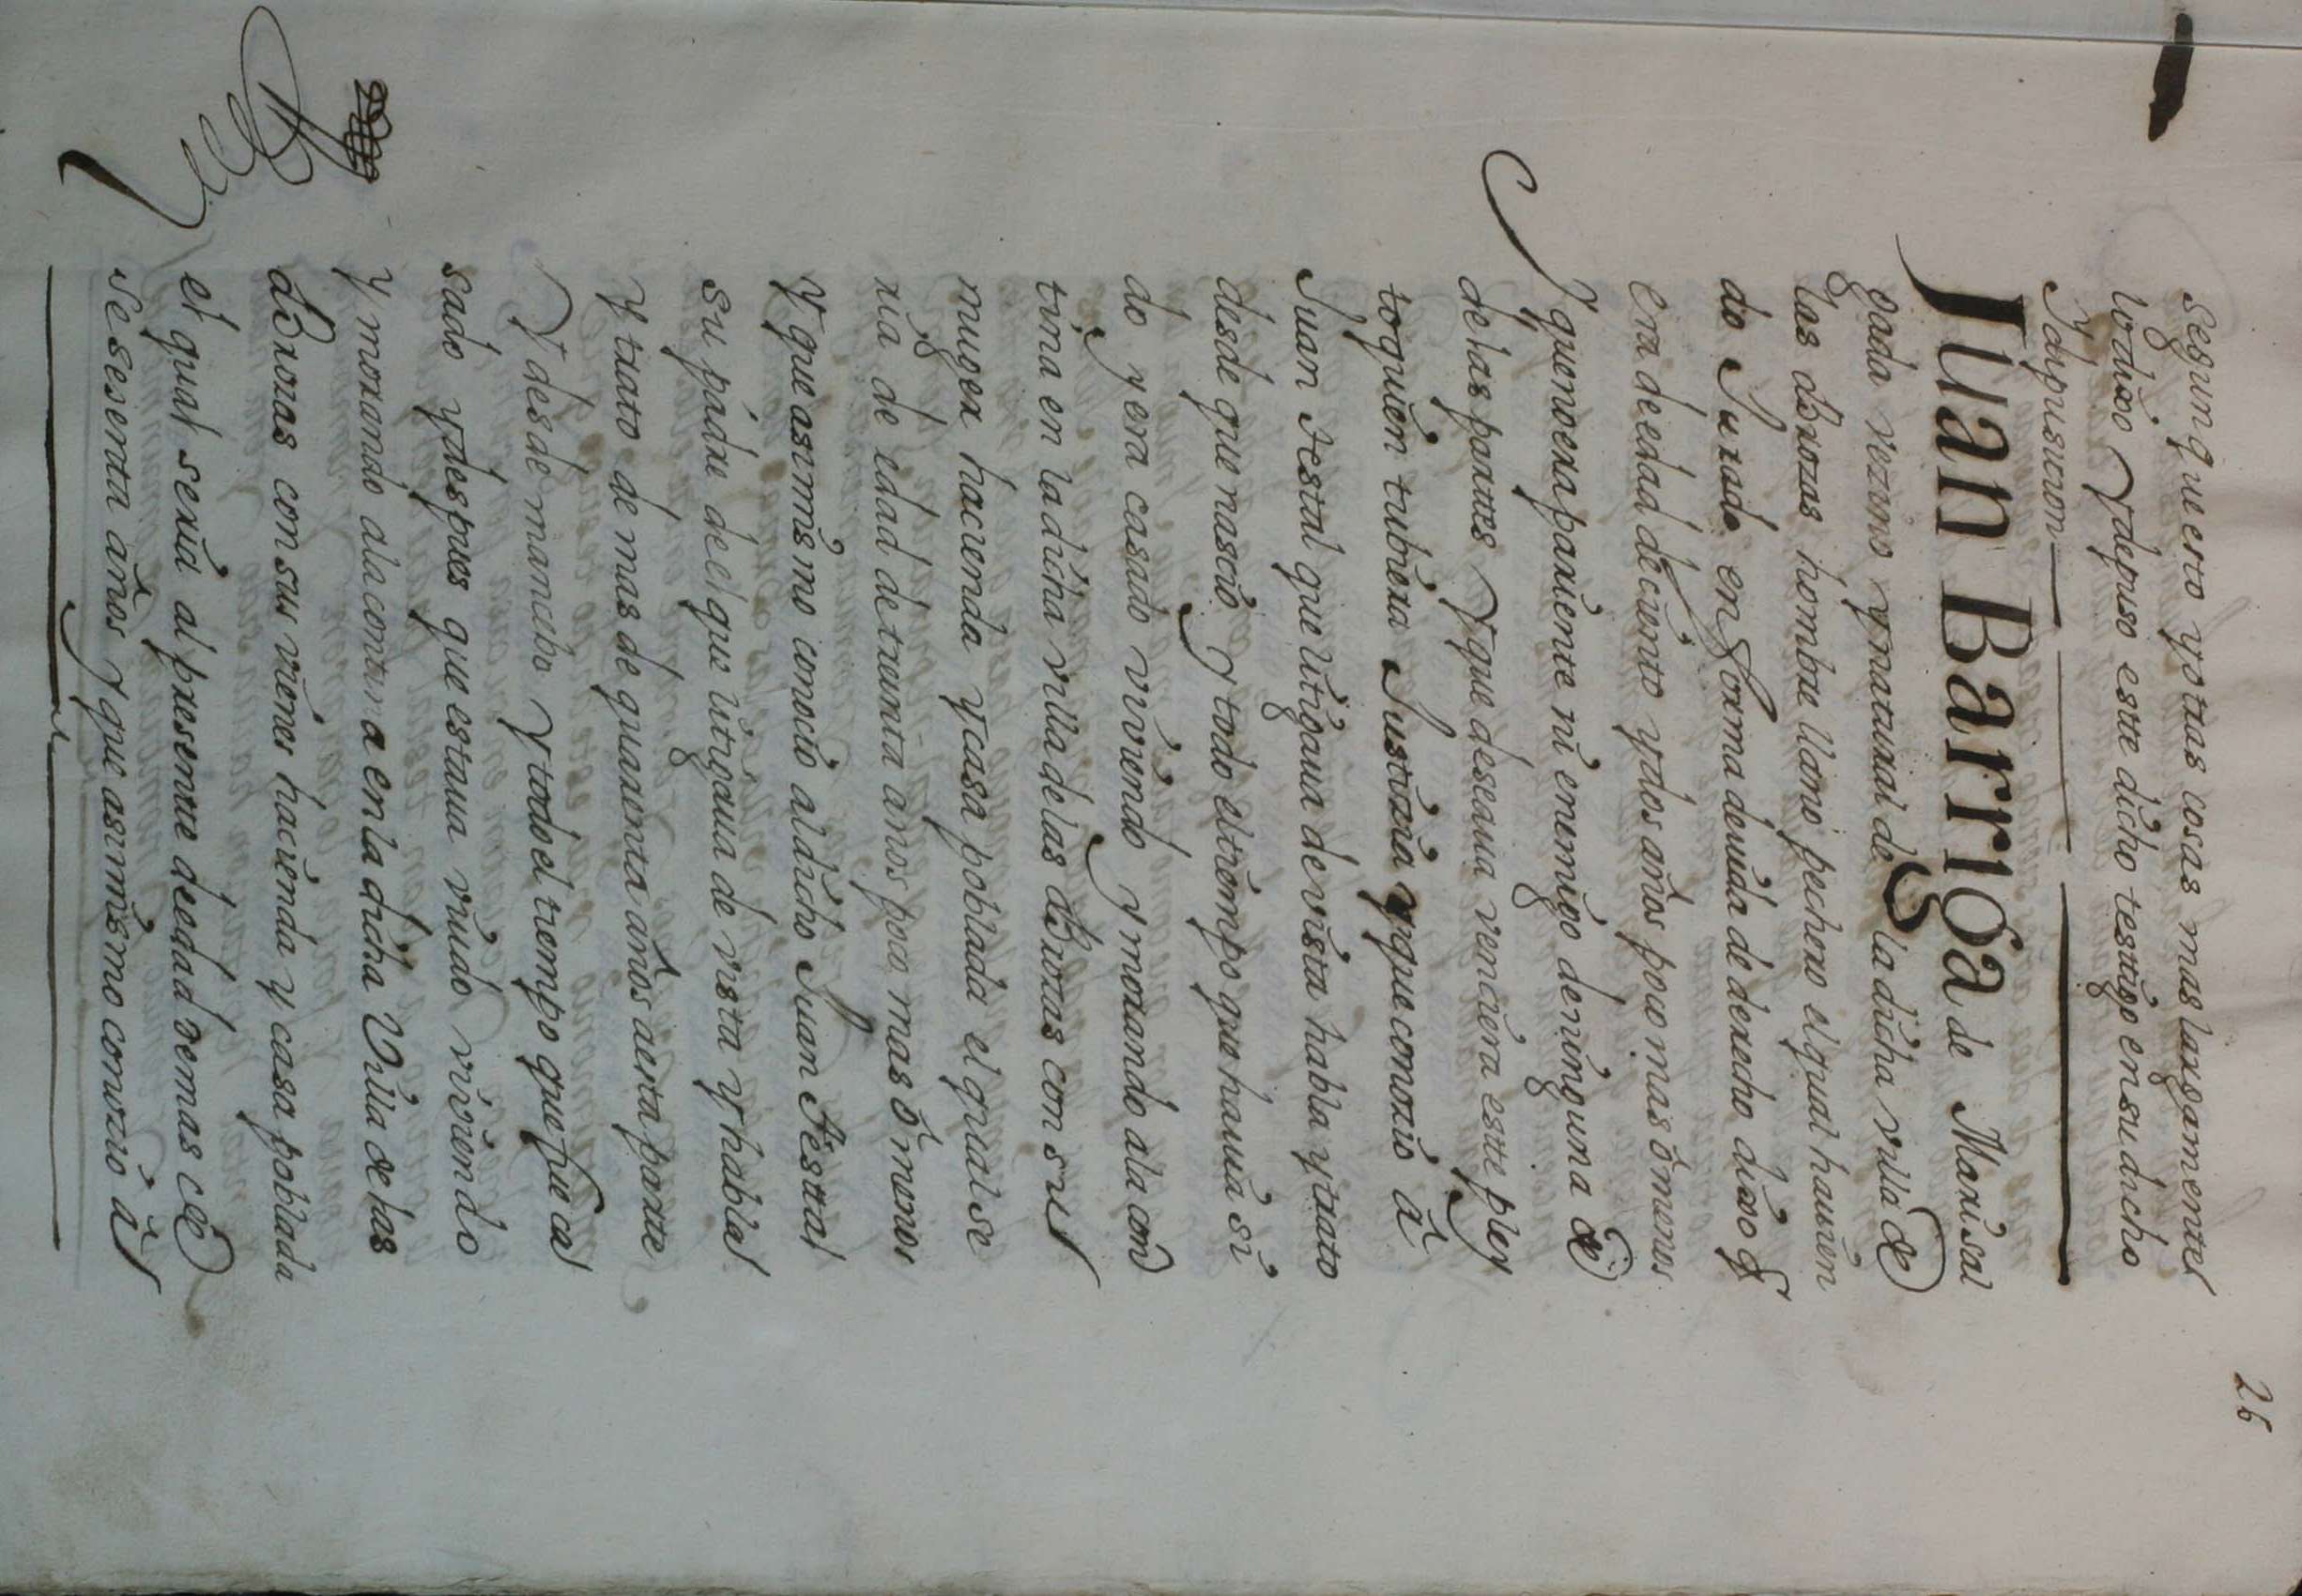 26
segun que esto y otras cosas mas largamente
lo dixo y depuso este dicho testigo en su dicho
y depusicion
Juan Barriga de Marisal
gada vezino y natural de la dicha villa de
las Brozas hombre llano pechero el qual havien
do Jurado en forma deuida de derecho dixo q
era de edad de ciento y dos años poco mas ó menos
y que no era pariente ni enemigo de ninguna de
de las partes y que deseaua venciera este pley
to quien tubiera Justicia y que conozio á
Juan Testal que litigaua de vista habla y trato
desde que nascio y todo el tiempo que hauia si
do y era casado viviendo y morando ala con
tina en la dicha villa de las Brozas con su
muger hacienda y casa poblada el qual se
ria de edad de treinta años poco mas ó menos
y que asimismo conocio al dicho Juan Testal
su padre de el que litigaua de vista y habla
y trato de mas de quarenta años aesta parte
y desde mancebo y todo el tiempo que fue ca
sado y despues que estaua viudo viviendo
y morando ala contina en la dicha Villa de las
Brozas con sus vienes hacienda y casa poblada
el qual seria al presente de edad de mas de
se sesenta años y que asimismo conozio á